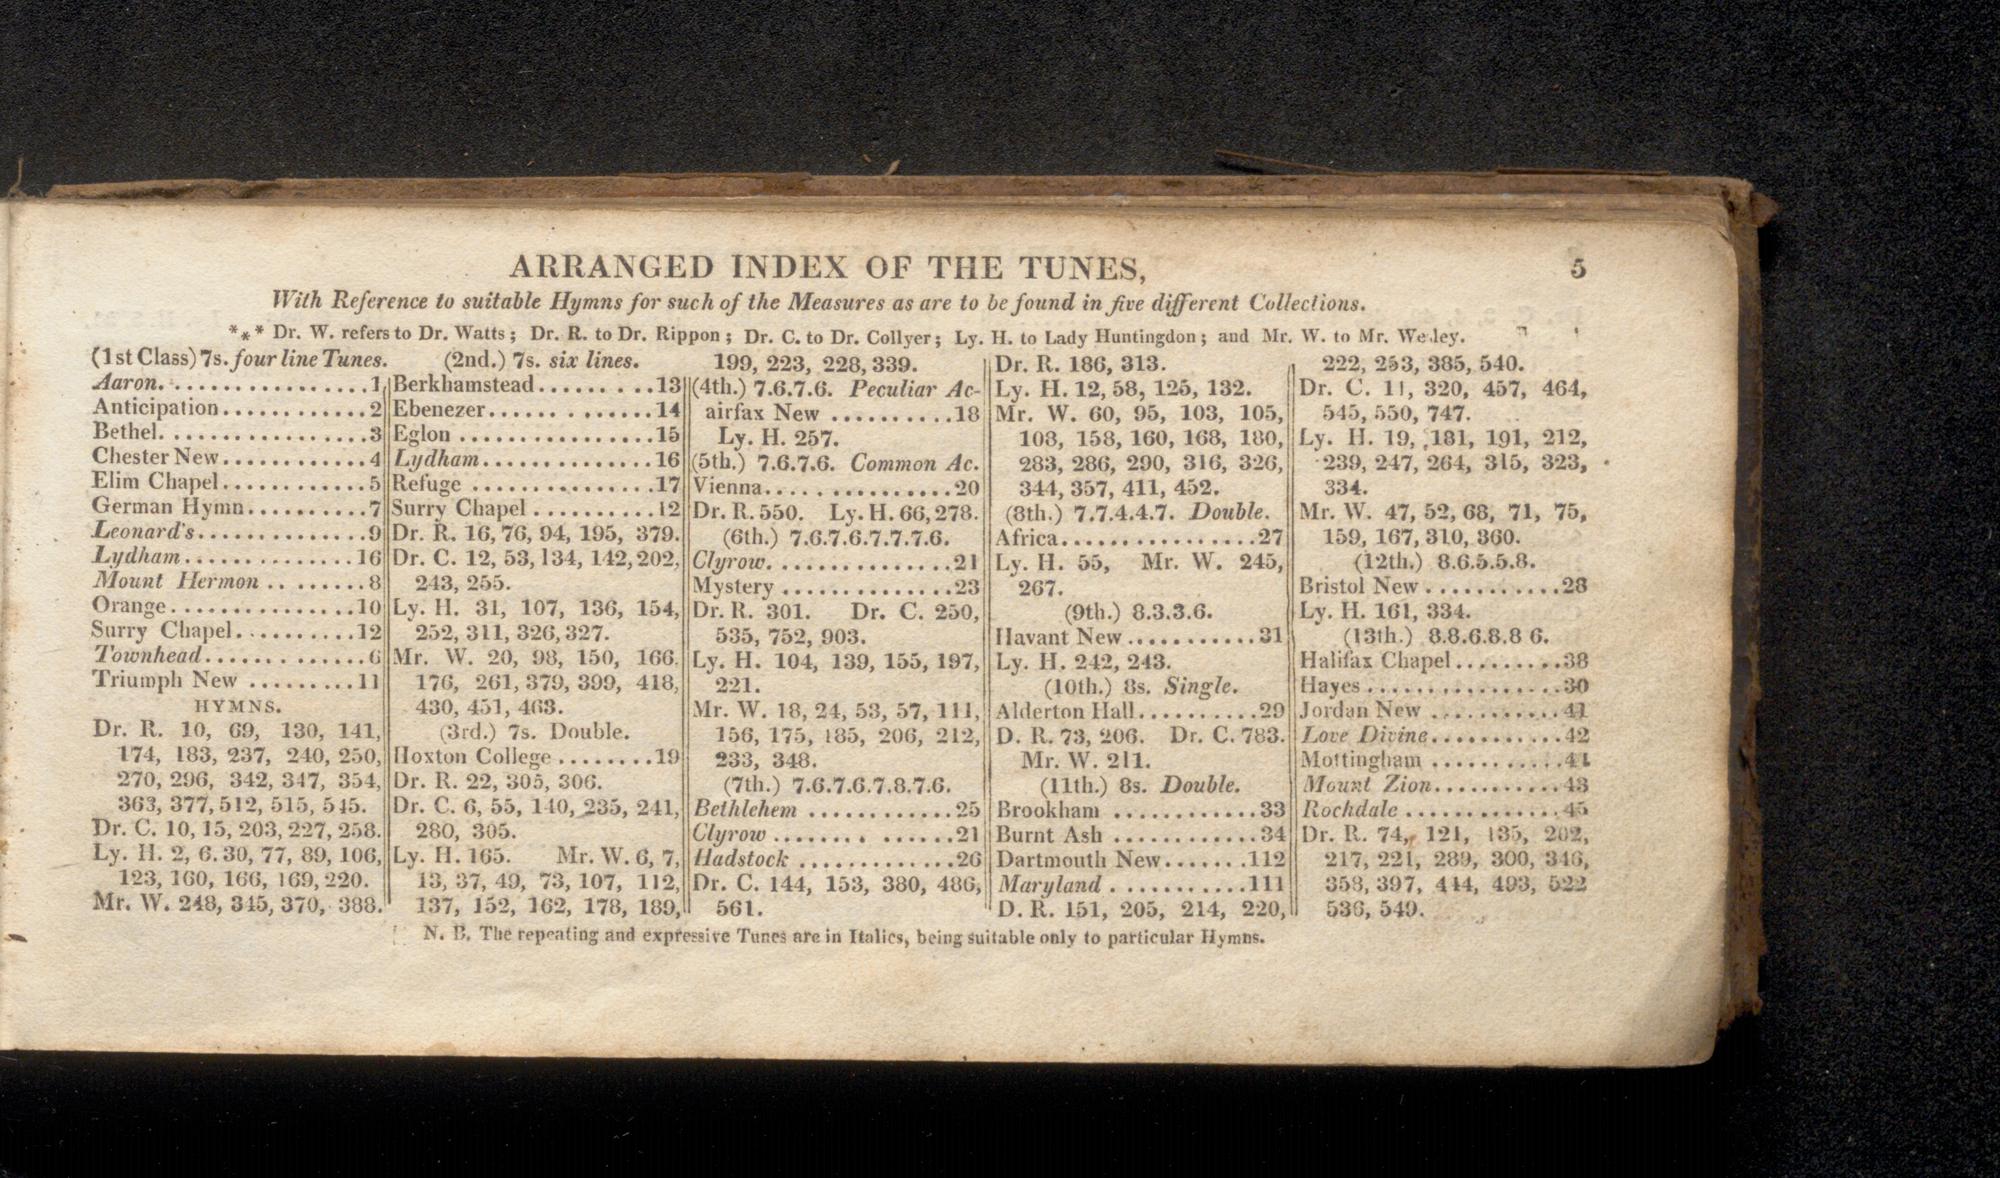 ARRANGED INDEX OF THE TUNES,
5
With Reference to suitable Hymns for such of the Measures as are to be found in five different Collections.
*⁎* Dr. W. refers to Dr. Watts; Dr. R. to Dr. Rippon; Dr. C. to Dr. Collyer; Ly. H. to Lady Huntingdon; and Mr. W. to Mr. Wesley.
(1st Class) 7s. four line Tunes.
Aaron................1
Anticipation............2
Bethel................3
Chester New............4
Elim Chapel............5
German Hymn..........7
Leonard's..............9
Lydham..............16
Mount Hermon .. ......8
Orange..............10
Surry Chapel..........12
Townhead............6
Triumph New .........11
HYMNS.
Dr. R. 10, 69, 130, 141,
174, 183, 237, 240, 250,
270, 296, 342, 347, 354,
363, 377, 512, 515, 545.
Dr. C. 10, 15, 203, 227, 258.
Ly. H. 2, 6. 30, 77, 89, 106,
123, 160, 166, 169, 220.
Mr. W. 248, 345, 370, 388.
(2nd.) 7s. six lines.
Berkhamstead..........13
Ebenezer...... . .......14
Eglon ................15
Lydham..............16
Refuge ...............17
Surry Chapel ..........12
Dr. R. 16, 76, 94, 195, 379.
Dr. C. 12, 53, 134, 142, 202,
243, 255.
Ly. H. 31, 107, 136, 154,
252, 311, 326, 327.
Mr. W. 20, 98, 150, 166.
176, 261, 379, 399, 418,
430, 451, 463.
(3rd.) 7s. Double.
Hoxton College ........19
Dr. R. 22, 305, 306.
Dr. C. 6, 55, 140, 235, 241,
280, 305.
Ly. H. 165. Mr. W. 6, 7,
13, 37, 49, 73, 107, 112,
137, 152, 162, 178, 189,
199, 223, 228, 339.
(4th.) 7.6.7.6. Peculiar Ac-
airfax New ..........18
Ly. H. 257.
(5th.) 7.6.7.6. Common Ac.
Vienna................20
Dr. R. 550. Ly. H. 66, 278.
(6th.) 7.6.7.6.7.7.7.6.
Clyrow...............21
Mystery ..............23
Dr. R. 301. Dr. C. 250,
535, 752, 903.
Ly. H. 104, 139, 155, 197,
221.
Mr. W. 18, 24, 53, 57, 111,
156, 175, 185, 206, 212,
233, 348.
(7th.) 7.6.7.6.7.8.7.6.
Bethlehem ............25
Clyrow ....... . ......21
Hadstock .............26
Dr. C. 144, 153, 380, 486,
561.
Dr. R. 186, 313.
Ly. H. 12, 58, 125, 132.
Mr. W. 60, 95, 103, 105,
108, 158, 160, 168, 180,
283, 286, 290, 316, 326,
344, 357, 411, 452.
(8th.) 7.7.4.4.7. Double.
Africa................27
Ly. H. 55, Mr. W. 245,
267.
(9th.) 8.3.3.6.
Havant New...........31
Ly. H. 242, 243.
(10th.) 8s. Single.
Alderton Hall..........29
D. R. 73, 206. Dr. C. 783.
Mr. W. 211.
(11th.) 8s. Double.
Brookham ............33
Burnt Ash ............34
Dartmouth New.......112
Maryland ...........111
D. R. 151, 205, 214, 220,
222, 253, 385, 540.
Dr. C. 11, 320, 457, 464,
545, 550, 747.
Ly. H. 19, 181, 191, 212,
239, 247, 264, 315, 323,
334.
Mr. W. 47, 52, 68, 71, 75,
159, 167, 310, 360.
(12th.) 8.6.5.5.8.
Bristol New ...........28
Ly. H. 161, 334.
(13th.) 8.8.6.8.8 6.
Halifax Chapel.........38
Hayes................30
Jordan New ...........41
Love Divine...........42
Mottingham ...........44
Mount Zion...........43
Rochdale .............45
Dr. R. 74, 121, 135, 202,
217, 221, 289, 300, 346,
358, 397, 444, 493, 522
536, 549.
N. B. The repeating and expressive Tunes are in Italics, being suitable only to particular Hymns.